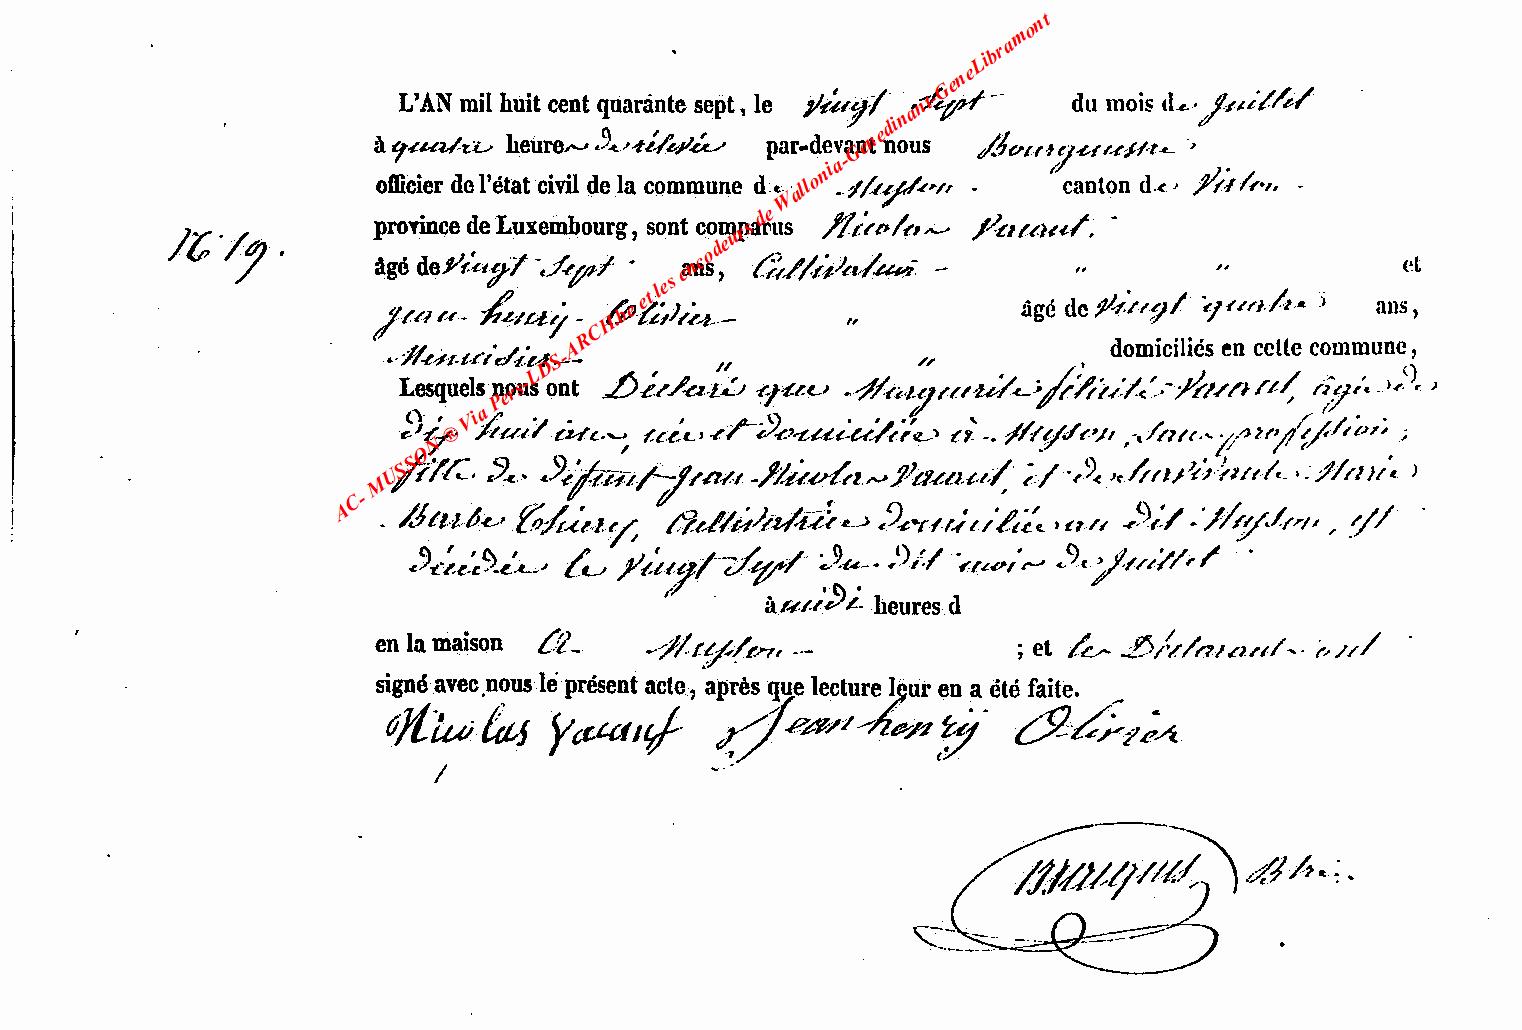 L'AN mil huit cent quarante sept, le vingt sept du mois de Juillet
à quatre heures de relevée par-devant nous Bourguemestre
officier de l'état civil de la commune de Musson canton de Virton
province de Luxembourg, sont comparus Nicolas Vacant.
N° 19.
âgé de vingt sept ans, Cultivateur " " et
Jean henry Olivier " âgé de vingt quatre ans,
Menuisier " " domiciliés en cette commune,
Lesquels nous ont Déclaré que Marguerite félicité Vacant, âgée de
dix huit ans, née et domiciliée à Musson, sans profession,
fille de défunt Jean Nicolas Vacant, et de survivante Marie
Barbe Thiery, Cultivatrice domiciliée au dit Musson, est
décédée le vingt sept du dit mois de Juillet
à midi heures d
en la maison à Musson ; et les Déclarants ont
signé avec nous le présent acte, après que lecture leur en a été faite.
Nicolas Vacant Jean henry Olivier
AC- MUSSON © Via Perv LDS-ARCH.be et les encodeurs de Wallonia-Genedinant-GeneLibramont